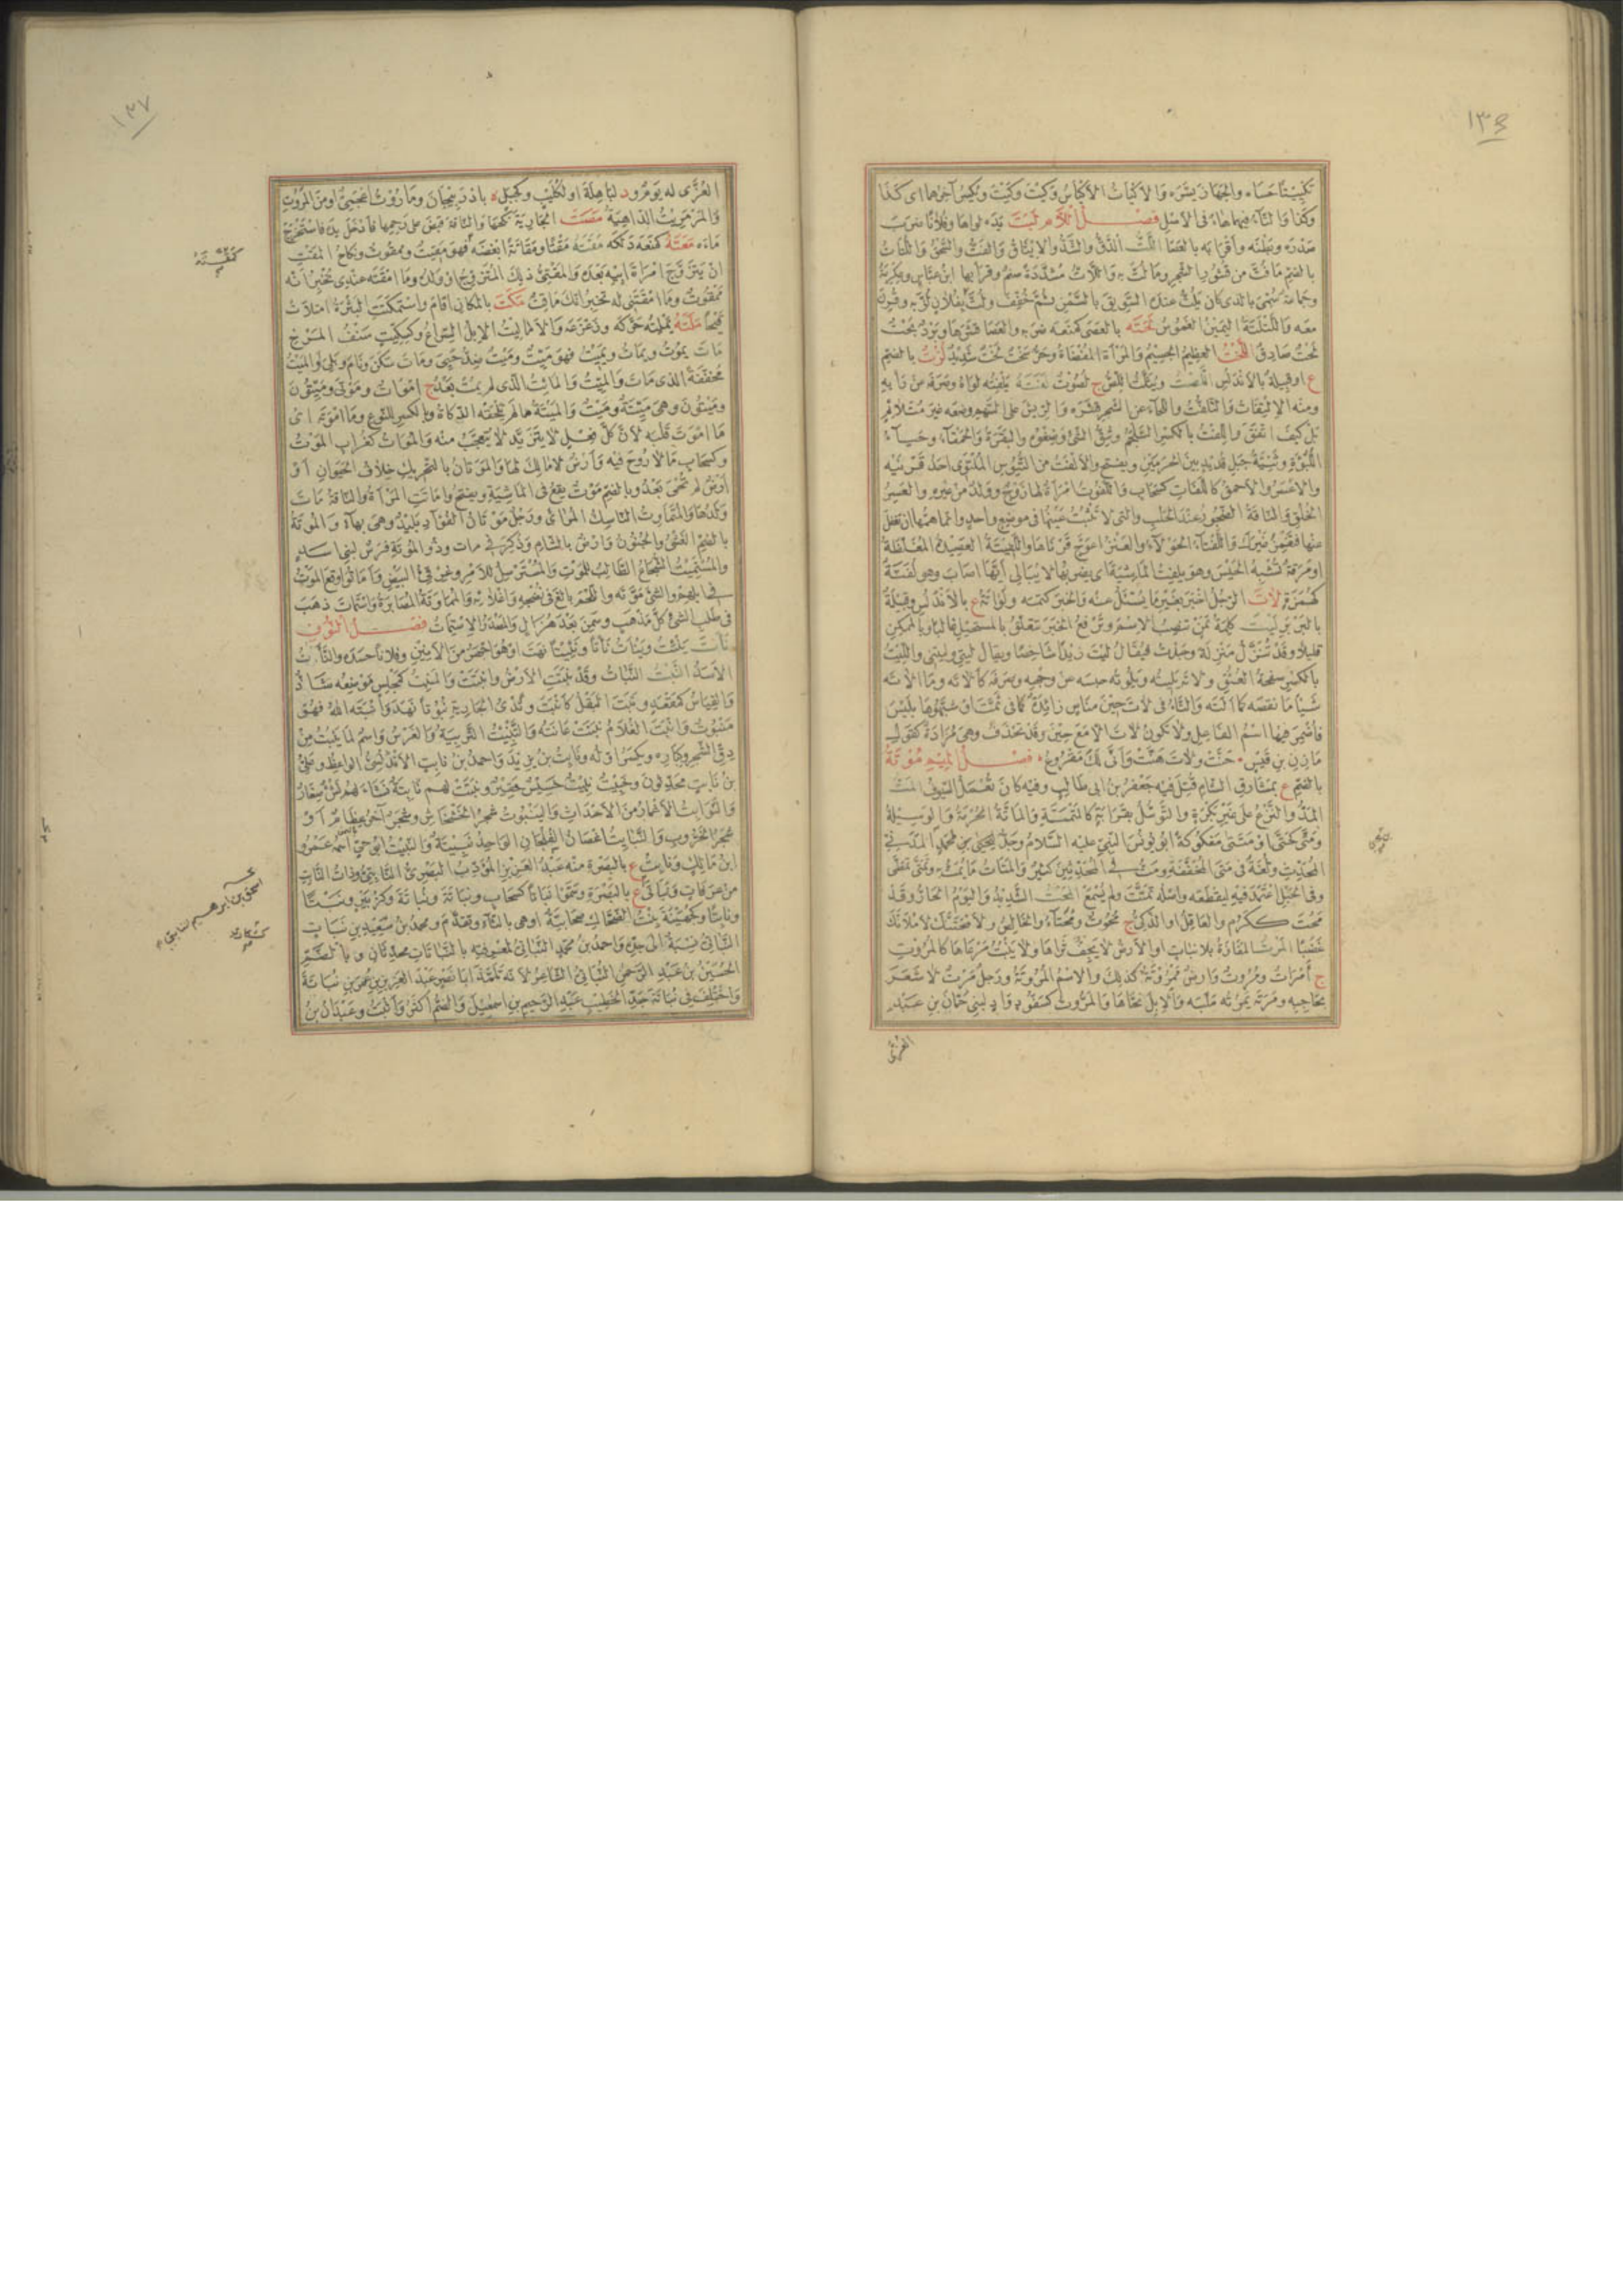 ١٣٦
تكييتا حشاه والجهاز يسره والاكيات الاكياس وكيت وكيت ويكسر آخرهما اى كذا
وكذا والتاء فيهما هاء فى الاصل فصل اللام لبت يده لواها وفلانا ضرب
صدره وبطنه واقرابه بالعصا اللت الدق والشد والايثاق والفت والسحق واللتات
بالضم ما فت من قشور الشجر وما لت به واللات مشددة صنم وقرأ بها ابن عباس وعكرمة
وجماعة سمى بالذى كان يلت عنده السويق بالسمن ثم خفف ولت بفلان لز به وقرن
معه واللتلتة اليمين الغموس لحته بالعصى كمنعه ضربه والعصا قشرها وبرد بحت
لحت صادق اللخت العظيم الجسيم والمراة المفضاة وحر سخت لخت شديد لزت بالضم
ع او قبيلة بالاندلس اللصت ويثلث اللص ج لصوت لفته يلفته لواه وصرفه عن رأيه
ومنه الالتفات والتلفت واللحاء عن الشجر قشره والريش على السهم وضعه غير متلائم
بل كيف اتفق واللفت بالكسر السلجم وشق الشئ وصغوه والبقرة والحمقاء وحياء
اللبؤة وثنية جبل قديد بين الحرمين ويفتح والالفت من التيوس الملتوى احد قرنيه
والاعسر والاحمق كاللفات كسحاب واللفوت امراة لها زوج وولد من غيره والعسر
الخلق والناقة الضجور عند الحلب والتى لا تثبت عينها فى موضع واحد وانما همها ان تغفل
عنها فتغمز غيرك واللفتاء الحولاء والعنز اعوج قرناها واللفيتة العصيدة المغلظة
او مرقة تشبه الحيس وهو يلفت الماشية اى يضربها لا يبالى ايها اصاب وهو لفتة
كهمزة لات الرجل اخبر بغير ما يسئل عنه والخبر كتمه ولواتة ع بالاندلس وقبيلة
بالبربر ليت كلمة تمن تنصب الاسم وترفع الخبر تتعلق بالمستحيل غالبا وبالممكن
قليلا وقد تنزل منزلة وجدت فيقال ليت زيدا شاخصا ويقال ليتى وليتنى والليت
بالكسر صفحة العنق ولاته يليته ويلوته حبسه عن وجهه وصرفه كالاته وما الاته
شيأ ما نقصه كالته والتاء فى لات حين مناص زائدة كما فى ثمت او شبهوها بليس
فاضمر فيها اسم الفاعل ولا تكون لات الا مع حين وقد تحذف وهى مرادة كقول
مازن بن قيس حنت ولات هنت وانى لك مقروع فصل الميم مؤتة
بالضم ع بمشارق الشام قتل فيه جعفر بن ابى طالب وفيه كان تعمل السيوف المت
المد والنزع على غير بكرة والتوسل بقرابة كالمتمتة والماتة الحرمة والوسيلة
ومتى كحتى او متتى مفكوكة ابو يونس النبى عليه السلام وجد ليحيى بن محمد المدينى
المحدث ولغة فى متى المخففة ومت فى المحدثين كثير والمتات ما يمت به وتمتى تمطى
وفى الحبل اعتمد فيه ليقطعه واصله تمتت ولم يسمع المحت الشديد واليوم الحار وقد
محت ككرم والعاقل او الذكى ج محوت ومحتاء والخالص ولامحتنك لاملانك
غضبا المرت المفازة بلا نبات او الارض لا يجف ثراها ولا ينبت مرعاها كالمروت
ج امرات ومروت وارض ممروتة كذلك والاسم المروتة ورجل مرت لا شعر
بحاجبه ومرته يمرته ملسه والابل نحاها والمروت كسفود واد لبنى حمان بن عبد
العزى
١٣٧
العزى له يوم ود لباهلة او لكليب وكجبل ة باذربيجان وماروت اعجمى او من المروت
والمرمريت الداهية مصت الجارية نكحها والناقة قبض على رحمها فادخل يده فاستخرج
ماءه معته كمنعه دلكه مقته مقتا ومقاتة ابغضه فهو مقيت وممقوت ونكاح المقت
ان يتزوج امراة ابيه بعده والمقتى ذلك المتزوج او ولده وما امقته عندى تخبر انه
ممقوت وما امقتنى له تخبر انك ماقت مكت بالمكان اقام واستمكتت البثرة امتلأت
قيحا ملته يملته حركه وزعزعه والاماليت الابل السراع وكسكيت سنف المرخ
مات يموت ويمات ويميت فهو ميت وميت ضد حيى ومات سكن ونام وبلى او الميت
مخففة الذى مات والميت والمائت الذى لم يمت بعد ج اموات وموتى وميتون
وميتون وهى ميتة وميت والميتة ما لم تلحقه الذكاة وبالكسر للنوع وما اموته اى
ما اموت قلبه لان كل فعل لا يتزيد لا يتعجب منه والموات كغراب الموت
وكسحاب ما لا روح فيه وارض لا مالك لها والموتان بالتحريك خلاف الحيوان او
ارض لم تحى بعد وبالضم موت يقع فى الماشية ويفتح واماتت المرأة والناقة مات
ولدها والمتماوت الناسك المرائى ورجل موتان الفؤاد بليد وهى بهاء والموتة
بالضم الغشى والجنون وارض بالشام وذكر فى مات وذو الموتة فرس لبنى اسد
والمستميت الشجاع الطالب للموت والمسترسل للامر وغرقئ البيض واماتوا وقع الموت
فى ابلهم والشئ موته واللحم بالغ فى نضجه واغلائه والمماوتة المصابرة واستمات ذهب
فى طلب الشئ كل مذهب وسمن بعد هزال والمصدر الاستمات فصل النون
نأت ينئت وينأت نأتا ونئيتا نهت او هو اجهر من الانين وفلانا حسده والنأات
الاسد النبت النبات وقد نبتت الارض وانبتت والمنبت كمجلس موضعه شاذ
والقياس كمقعد ونبت البقل كانبت وثدى الجارية نبوتا نهد وانبته الله فهو
منبوت وانبت الغلام نبتت عانته والتنبيت التربية والغرس واسم لما ينبت من
دق الشجر وكباره ويكسر اوله ونابت بن يزيد واحمد بن نابت الاندلسى الواعظ وعلى
بن نابت محدثون وخبيت نبيت خسيس حقير ونبتت لهم نابتة نشأ لهم نشء صغار
والنوابت الاغمار من الاحداث والينبوت شجر الخشخاش وشجر آخر عظام او
شجر الخروب والنبائت اغصان الفلجان الواحد نبيتة والنبيت ابو حى اسمه عمرو
ابن مالك ونابت ع بالبصرة منه عبد العزيز المؤدب البصرى النابتى وذات النابت
من عرفات ونباتى ع بالبصرة وسموا نباتا كسحاب ونباتة ونباتة وكزبير ونبتا
ونابتا وكجهينة بنت الضحاك صحابية او هى بالثاء وتقدم ومحمد بن سعيد بن نبات
النباتى نسبة الى جده واحمد بن محمد النباتى لمعرفته بالنباتات محدثان وبالضم
الحسين بن عبد الرحمن النباتى الشاعر لانه تلمذ ابا نصر عبد العزيز بن عمر بن نباتة
واختلف فى نباتة جد الخطيب عبد الرحيم بن اسمعيل والضم اكثر واثبت وعبدان بن